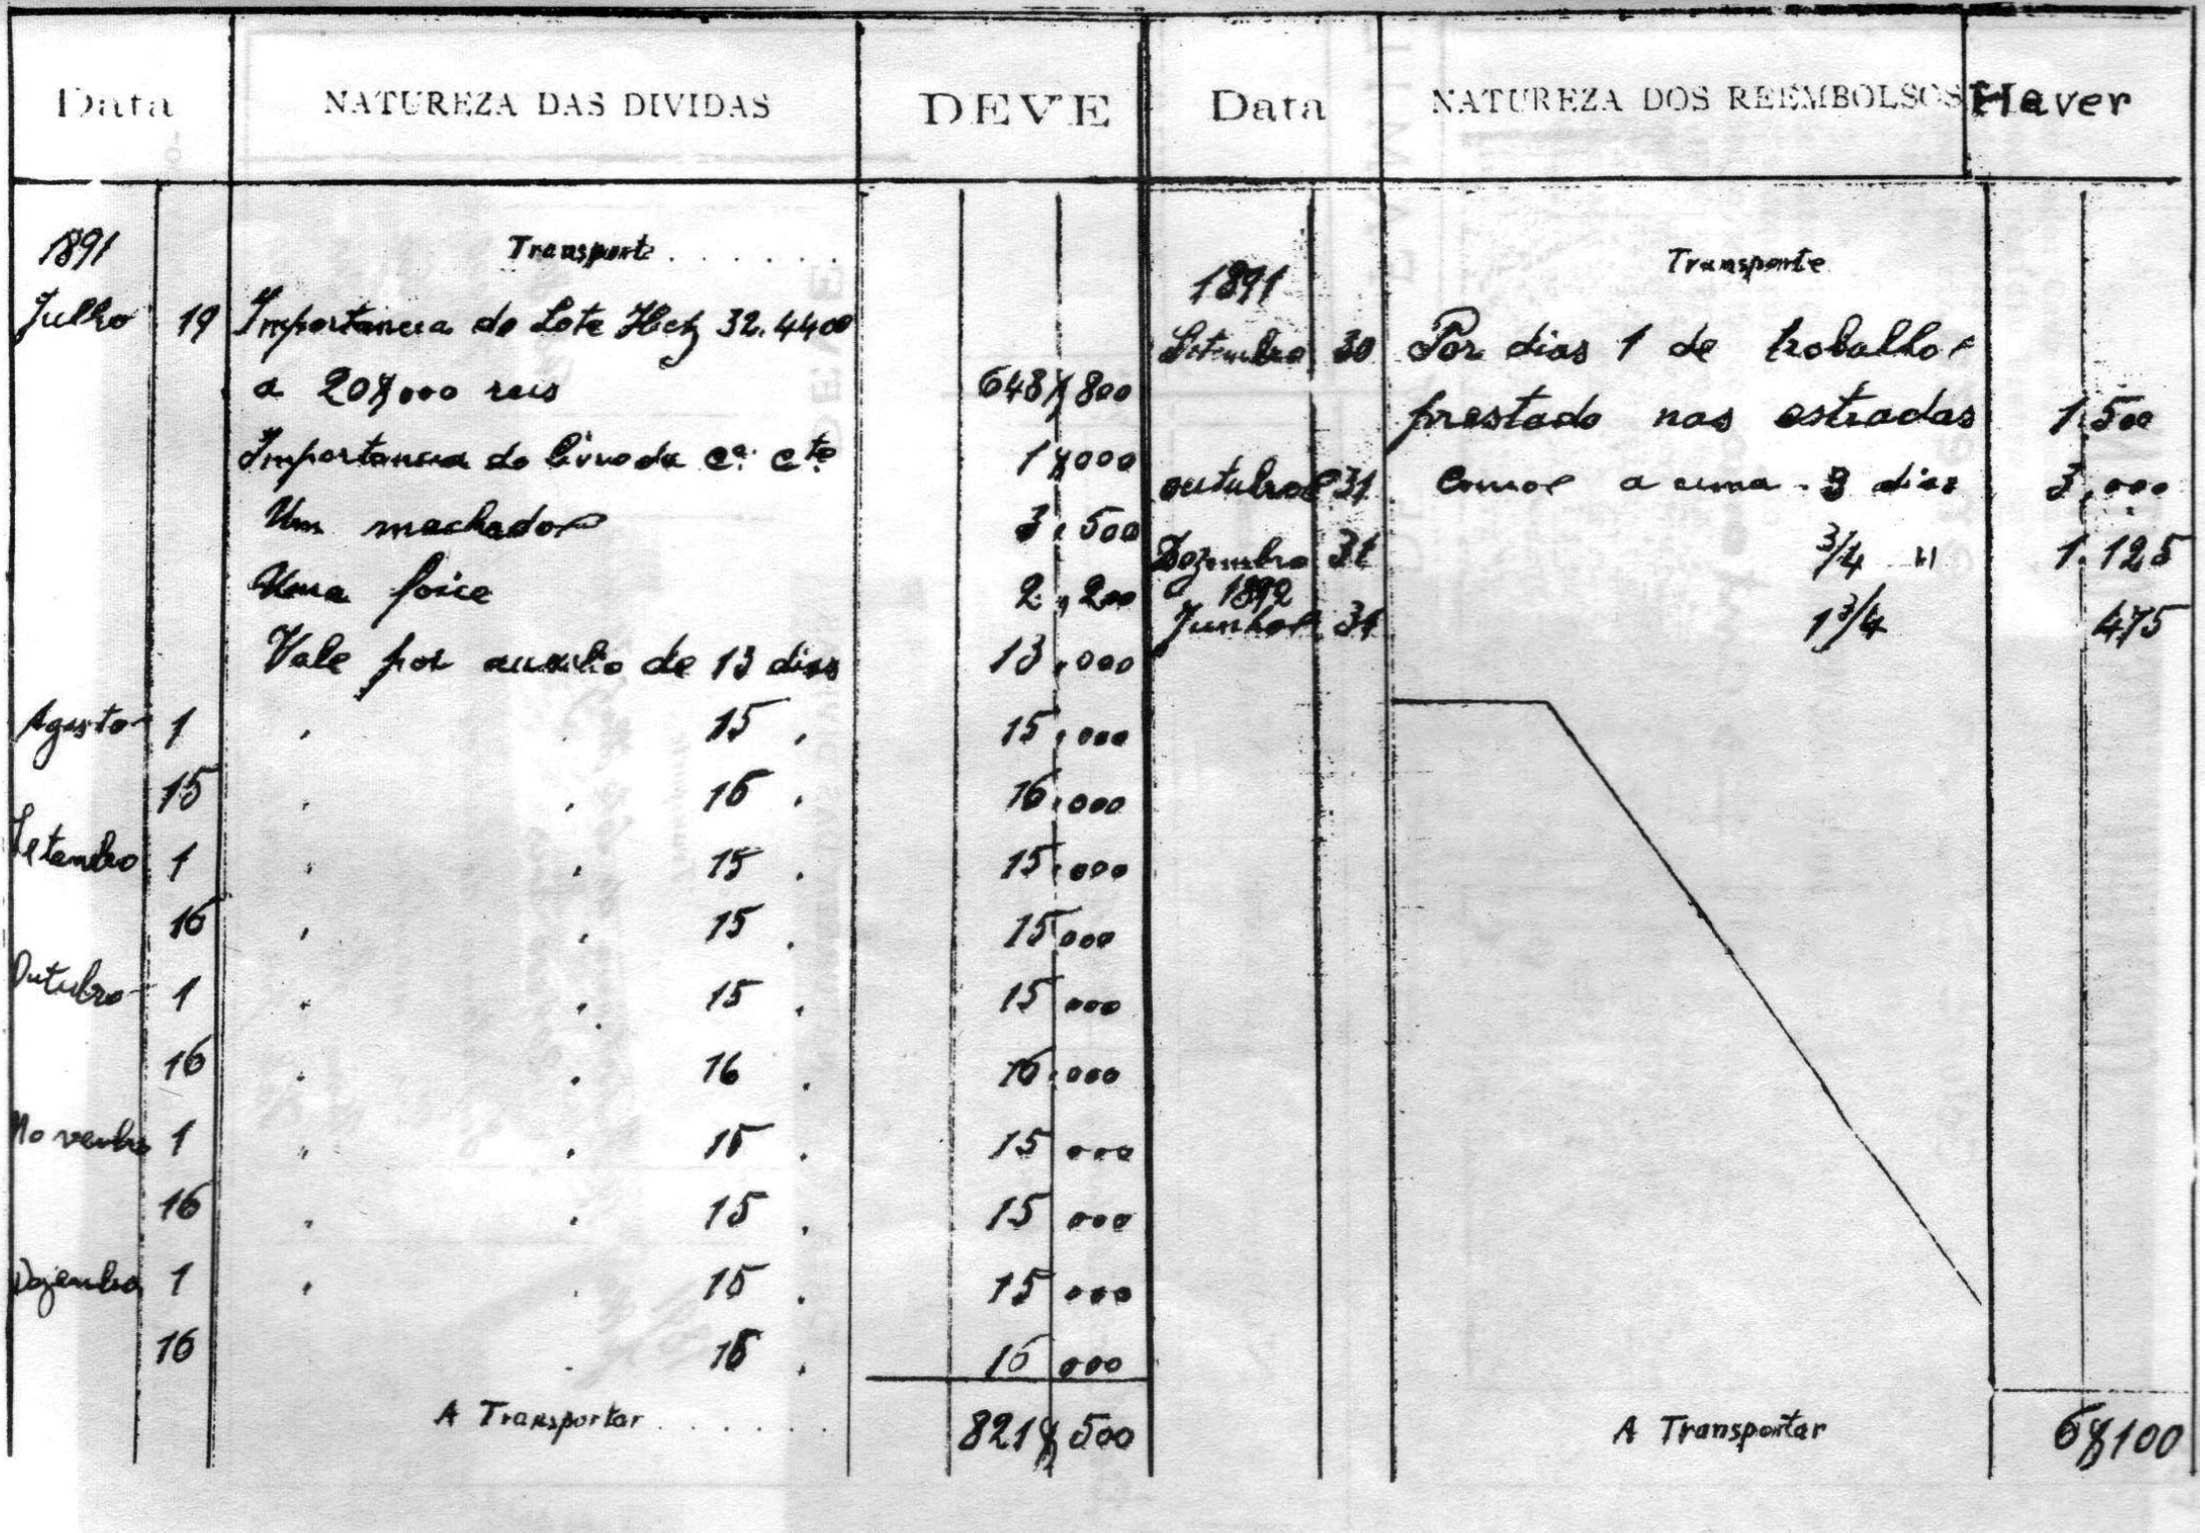 Data NATUREZA DAS DIVIDAS DEVE Data NATUREZA DOS REEMBOLSOS Haver
1891 Transporte . . . . . .
Julho 19 Importancia do Lote Hect 32.4400
a 20$000 reis 648$800
Importancia do livro da cª. cte 1$000
Um machado 3,500
Uma foice 2,200
Vale por auxilio de 13 dias 13,000
Agosto 1 " " 15 " 15,000
15 " " 16 " 16,000
Setembro 1 " " 15 " 15,000
16 " " 15 " 15000
Outubro 1 " " 15 " 15 000
16 " " 16 " 16,000
Novembro 1 " " 15 " 15 000
16 " " 15 " 15 000
Dezembro 1 " " 15 " 15 000
16 " 15 " 15 000
A Transportar . . . . . . 821$500
Transporte
1891
Setembro 30 Por dias 1 de trabalho
prestado nas estradas 1.500
outubro 31 Como a cima 3 dias 3,000
Dezembro 31 3/4 " 1.125
1892
Junho 31 1 3/4 475
A Transportar 6$100